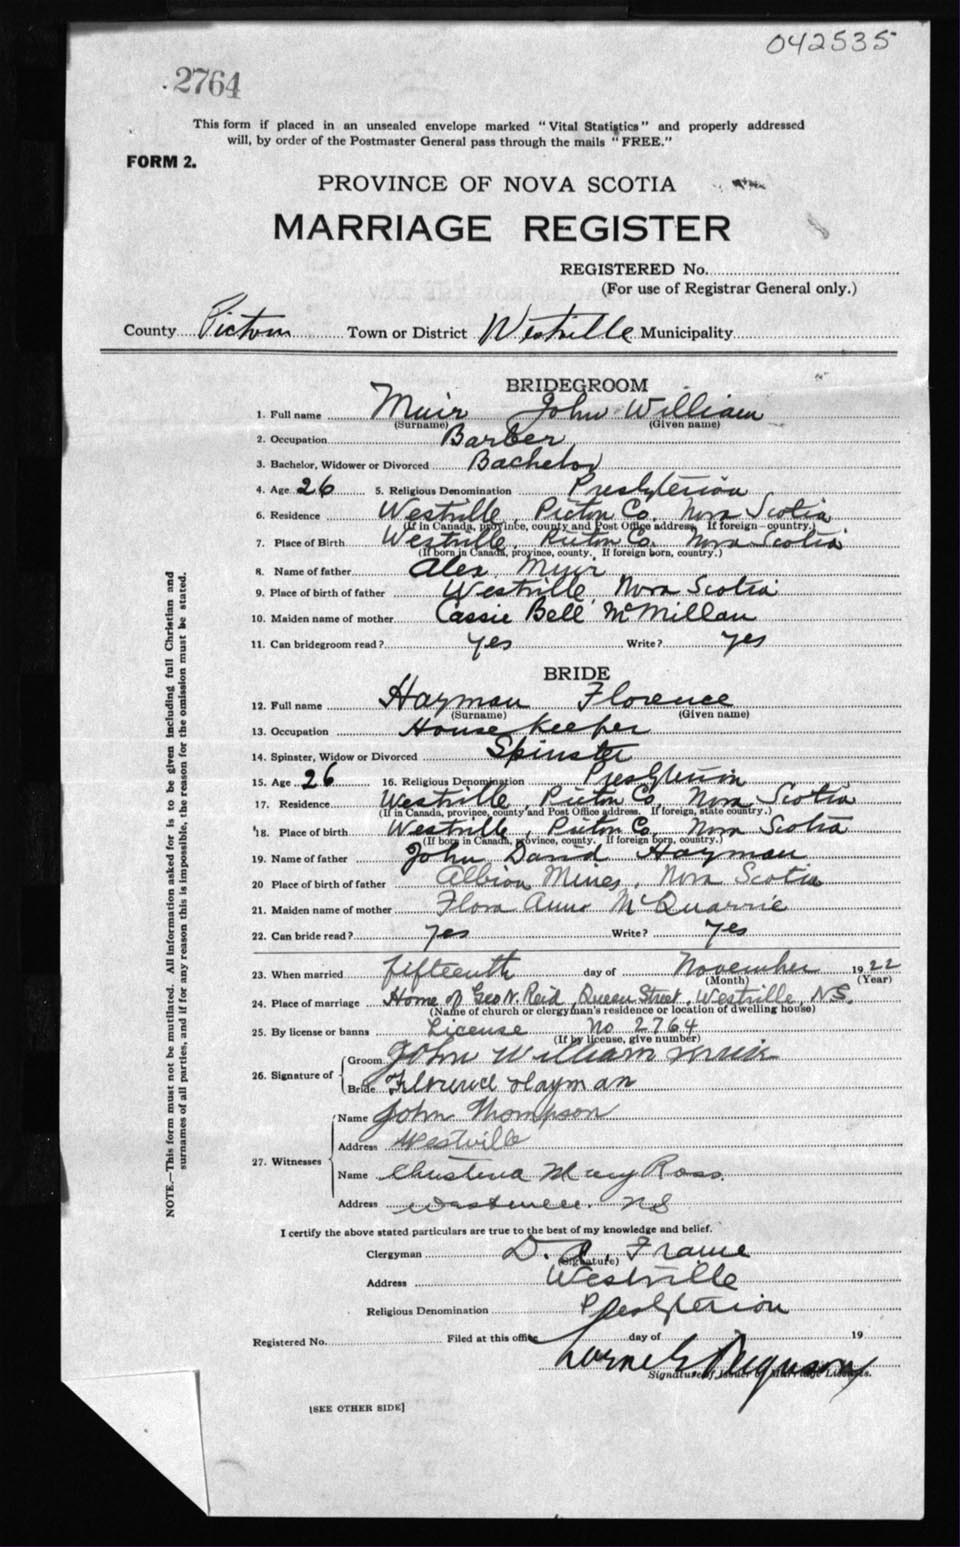 042535
2764
This form if placed in an unsealed envelope marked "Vital Statistics" and properly addressed
will, by order of the Postmaster General pass through the mails "FREE."
FORM 2.
PROVINCE OF NOVA SCOTIA
MARRIAGE REGISTER
REGISTERED No.
(For use of Registrar General only.)
County Pictou Town or District Westville Municipality
BRIDEGROOM
1. Full name Muir John William
(Surname) (Given name)
2. Occupation Barber
3. Bachelor, Widower or Divorced Bachelor
4. Age 26 5. Religious Denomination Presbyterian
6. Residence Westville, Pictou Co. Nova Scotia
(If in Canada, province, county and Post Office address. If foreign—country.)
7. Place of Birth Westville, Pictou Co. Nova Scotia
(If born in Canada, province, county. If foreign born, country.)
8. Name of father Alex Muir
9. Place of birth of father Westville, Nova Scotia
10. Maiden name of mother Cassie Bell McMillan
11. Can bridegroom read? yes Write? yes
BRIDE
12. Full name Hayman Florence
(Surname) (Given name)
13. Occupation House keeper
14. Spinster, Widow or Divorced Spinster
15. Age 26 16. Religious Denomination Presbyterian
17. Residence Westville, Pictou Co. Nova Scotia
(If in Canada, province, county and Post Office address. If foreign, state country.)
18. Place of birth Westville, Pictou Co. Nova Scotia
(If born in Canada, province, county. If foreign born, country.)
19. Name of father John David Hayman
20 Place of birth of father Albion Mines, Nova Scotia
21. Maiden name of mother Flora Anne McQuarrie
22. Can bride read? yes Write? yes
23. When married fifteenth day of November 1922
(Month) (Year)
24. Place of marriage Home of Geo N. Reid, Queen Street, Westville, N.S.
(Name of church or clergyman's residence or location of dwelling house)
25. By license or banns License No 2764
(If by license, give number)
26. Signature of
Groom John William Muir
Bride Florence Hayman
27. Witnesses
Name John Thompson
Address Westville
Name Christena Mary Ross
Address Westville. NS
I certify the above stated particulars are true to the best of my knowledge and belief.
Clergyman D. A. Frame
(Signature)
Address Westville
Religious Denomination Presbyterian
Registered No. Filed at this office day of 19
Lorne G Ferguson
Signature of Issuer of Marriage Licenses.
[SEE OTHER SIDE]
NOTE.—This form must not be mutilated. All information asked for is to be given including full Christian and
surnames of all parties, and if for any reason this is impossible, the reason for the omission must be stated.